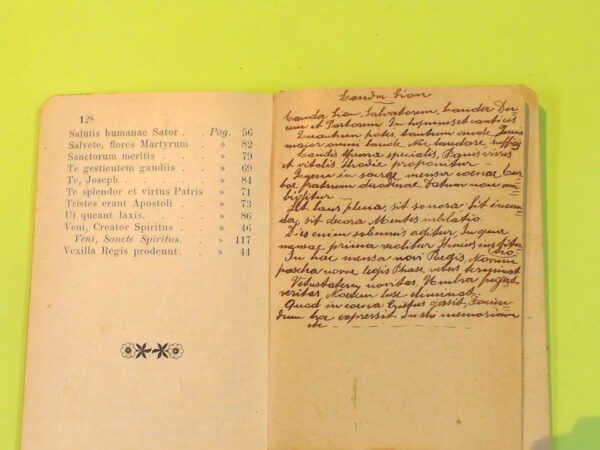 128
Salutis humanae Sator . . Pag. 56
Salvete, flores Martyrum . » 82
Sanctorum meritis . . . » 79
Te gestientem gaudiis . . » 69
Te, Joseph . . . . » 84
Te splendor et virtus Patris » 71
Tristes erant Apostoli . . » 73
Ut queant laxis. . . . » 86
Veni, Creator Spiritus . . » 46
Veni, Sancte Spiritus. . » 117
Vexilla Regis prodeunt. . » 44
Lauda Sion
Lauda Sion Salvatorem, Lauda Du
cem et Pastorem In hymnis et canticis
Quantum potes tantum aude Quia
major omni laude Nec laudare suffici
Laudis thema specialis, Panis vivus
et vitalis Hodie proponitur
Quem in sacrae mensa coenae Tur
bae fratrum duodenae Datum non am
bigitur
Sit laus plena, sit sonora Sit jucun
da, sit decora Mentis jubilatio.
Dies enim solemnis agitur, In qua
mensae prima recolitur Hujus institutio
In hac mensa novi Regis, Novum
pascha novae legis Phase vetus terminat
Vetustatem novitas, Umbra fugat
veritas Noctem lux eliminat.
Quod in coena Cristus gessit, Facien
dum hoc expressit In sui memoriam